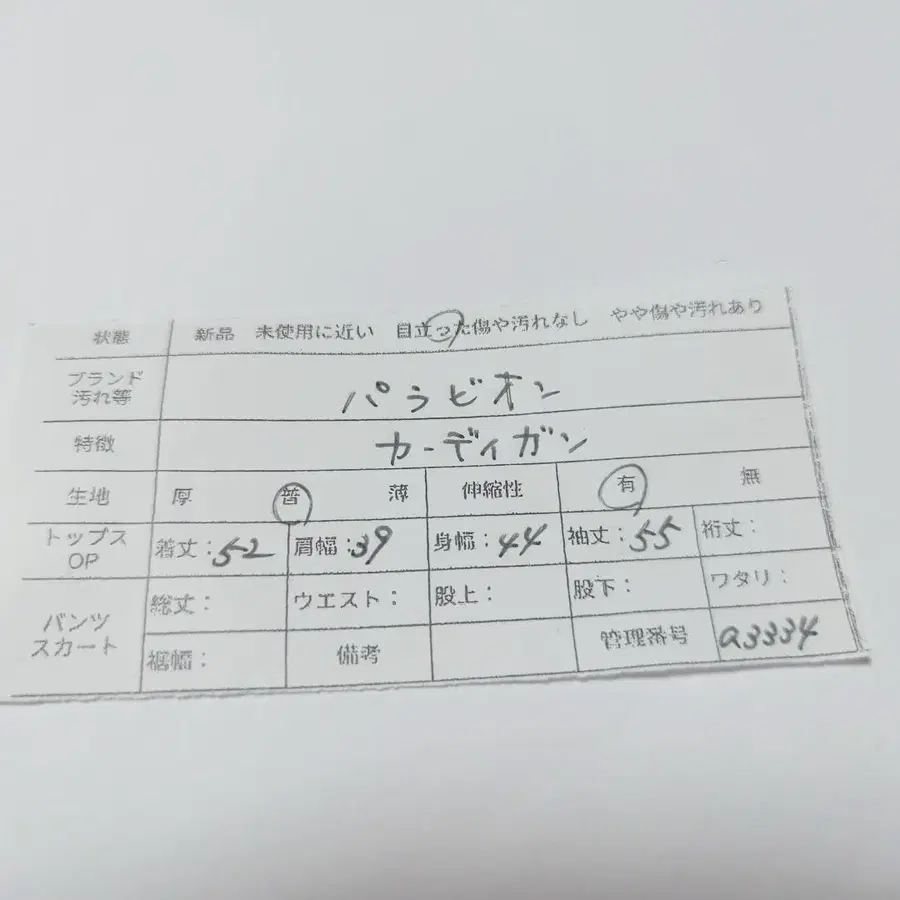 状態 新品 未使用に近い 目立った傷や汚れなし やや傷や汚れあり
ブランド
汚れ等 パラビオン
特徴 カーディガン
生地 厚 普 薄 伸縮性 有 無
トップス
OP 着丈:52 肩幅:39 身幅:44 袖丈:55 裄丈:
パンツ
スカート 総丈: ウエスト: 股上: 股下: ワタリ:
裾幅: 備考 管理番号 a3334